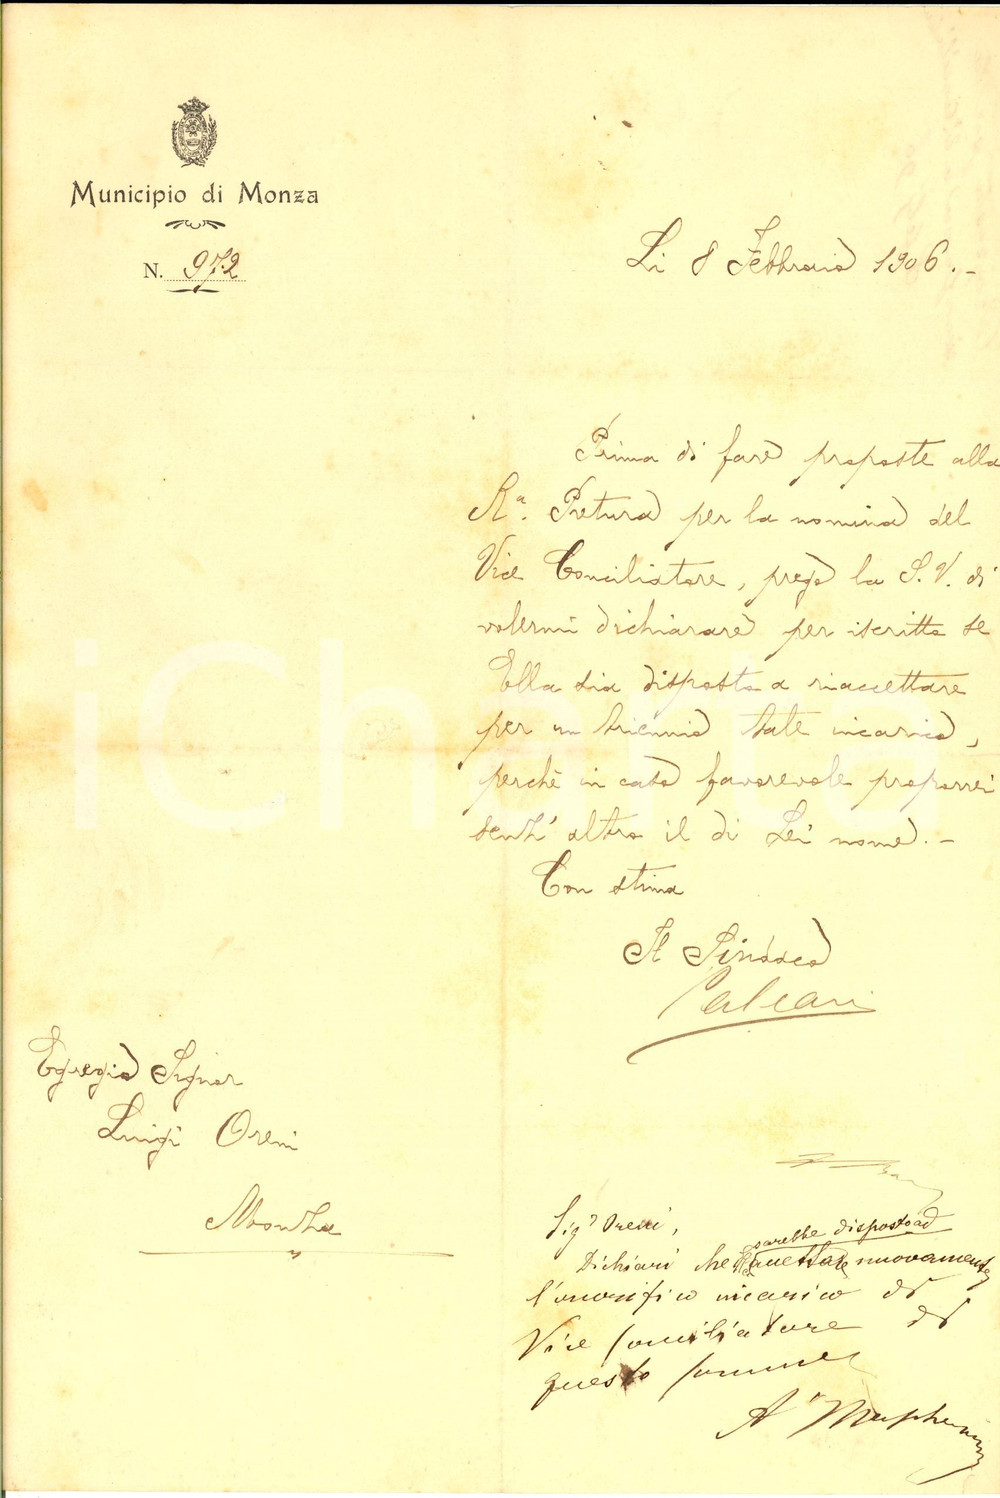 Municipio di Monza
N. 972
Li 8 Febbraio 1906.-
Prima di fare proposte alla
Ra. Pretura per la nomina del
Vice Conciliatore, prego la S. V. di
volermi dichiarare per iscritto se
Ella sia disposto a riaccettare
per un triennio tale incarico,
perchè in caso favorevole proporrei
senz' altro il di Lei nome.-
Con stima
Il Sindaco
Egregio Signor
Luigi Oreni
Monza
Sigr Oreni,
sarebbe disposto ad
Dichiari che accettare nuovamente
l'onorifico incarico di
Vice Conciliatore di
questo Comune
iCharta